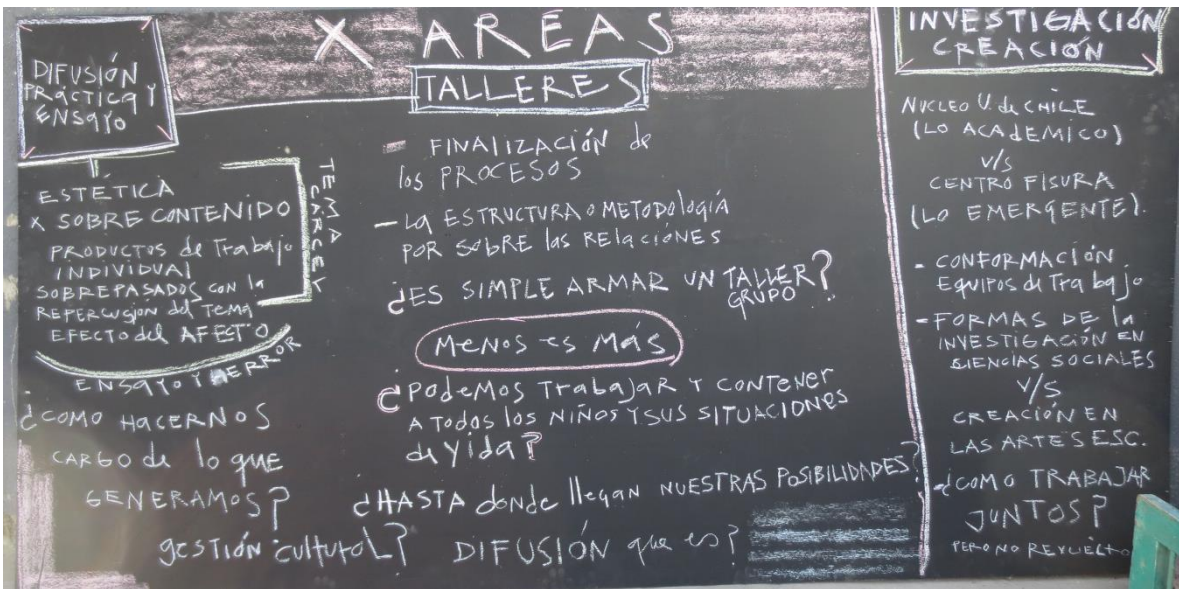 X AREAS
DIFUSIÓN
PRÁCTICA Y
ENSAYO
ESTÉTICA
X SOBRE CONTENIDO
PRODUCTOS de Trabajo
INDIVIDUAL
SOBREPASADOS con la
REPERCUSIÓN del TEMA
EFECTO del AFECTO
TEMA
CARCEL
ENSAYO Y ERROR
¿COMO HACERNOS
CARGO de lo que
GENERAMOS?
GESTIÓN CULTURAL?
TALLERES
- FINALIZACIÓN de
los PROCESOS
- LA ESTRUCTURA O METODOlogíA
POR SOBRE las RELACIÓNES
¿ES SIMPLE ARMAR UN TALLER?
GRUPO
MENOS es MÁS
¿PODEMOS TRABAJAR Y CONTENER
A Todos los NIÑOS Y SUS SITUACIONES
de VIDA?
¿HASTA dONde llegan NUESTRAS POSIBILIDADES?
DIFUSIÓN que es?
INVESTIGACIÓN
CREACIÓN
NUCLEO U. de CHILE
(LO ACAdEMICO)
V/S
CENTRO FISURA
(LO EMERGENTE).
- CONFORMACIÓN
Equipos de Trabajo
- FORMAS DE la
INVESTIGACIÓN EN
SIENCIAS SOCIALES
V/S
CREACIÓN EN
LAS ARTES ESC.
- ¿COMO TRABAJAR
JUNTOS?
PERO NO